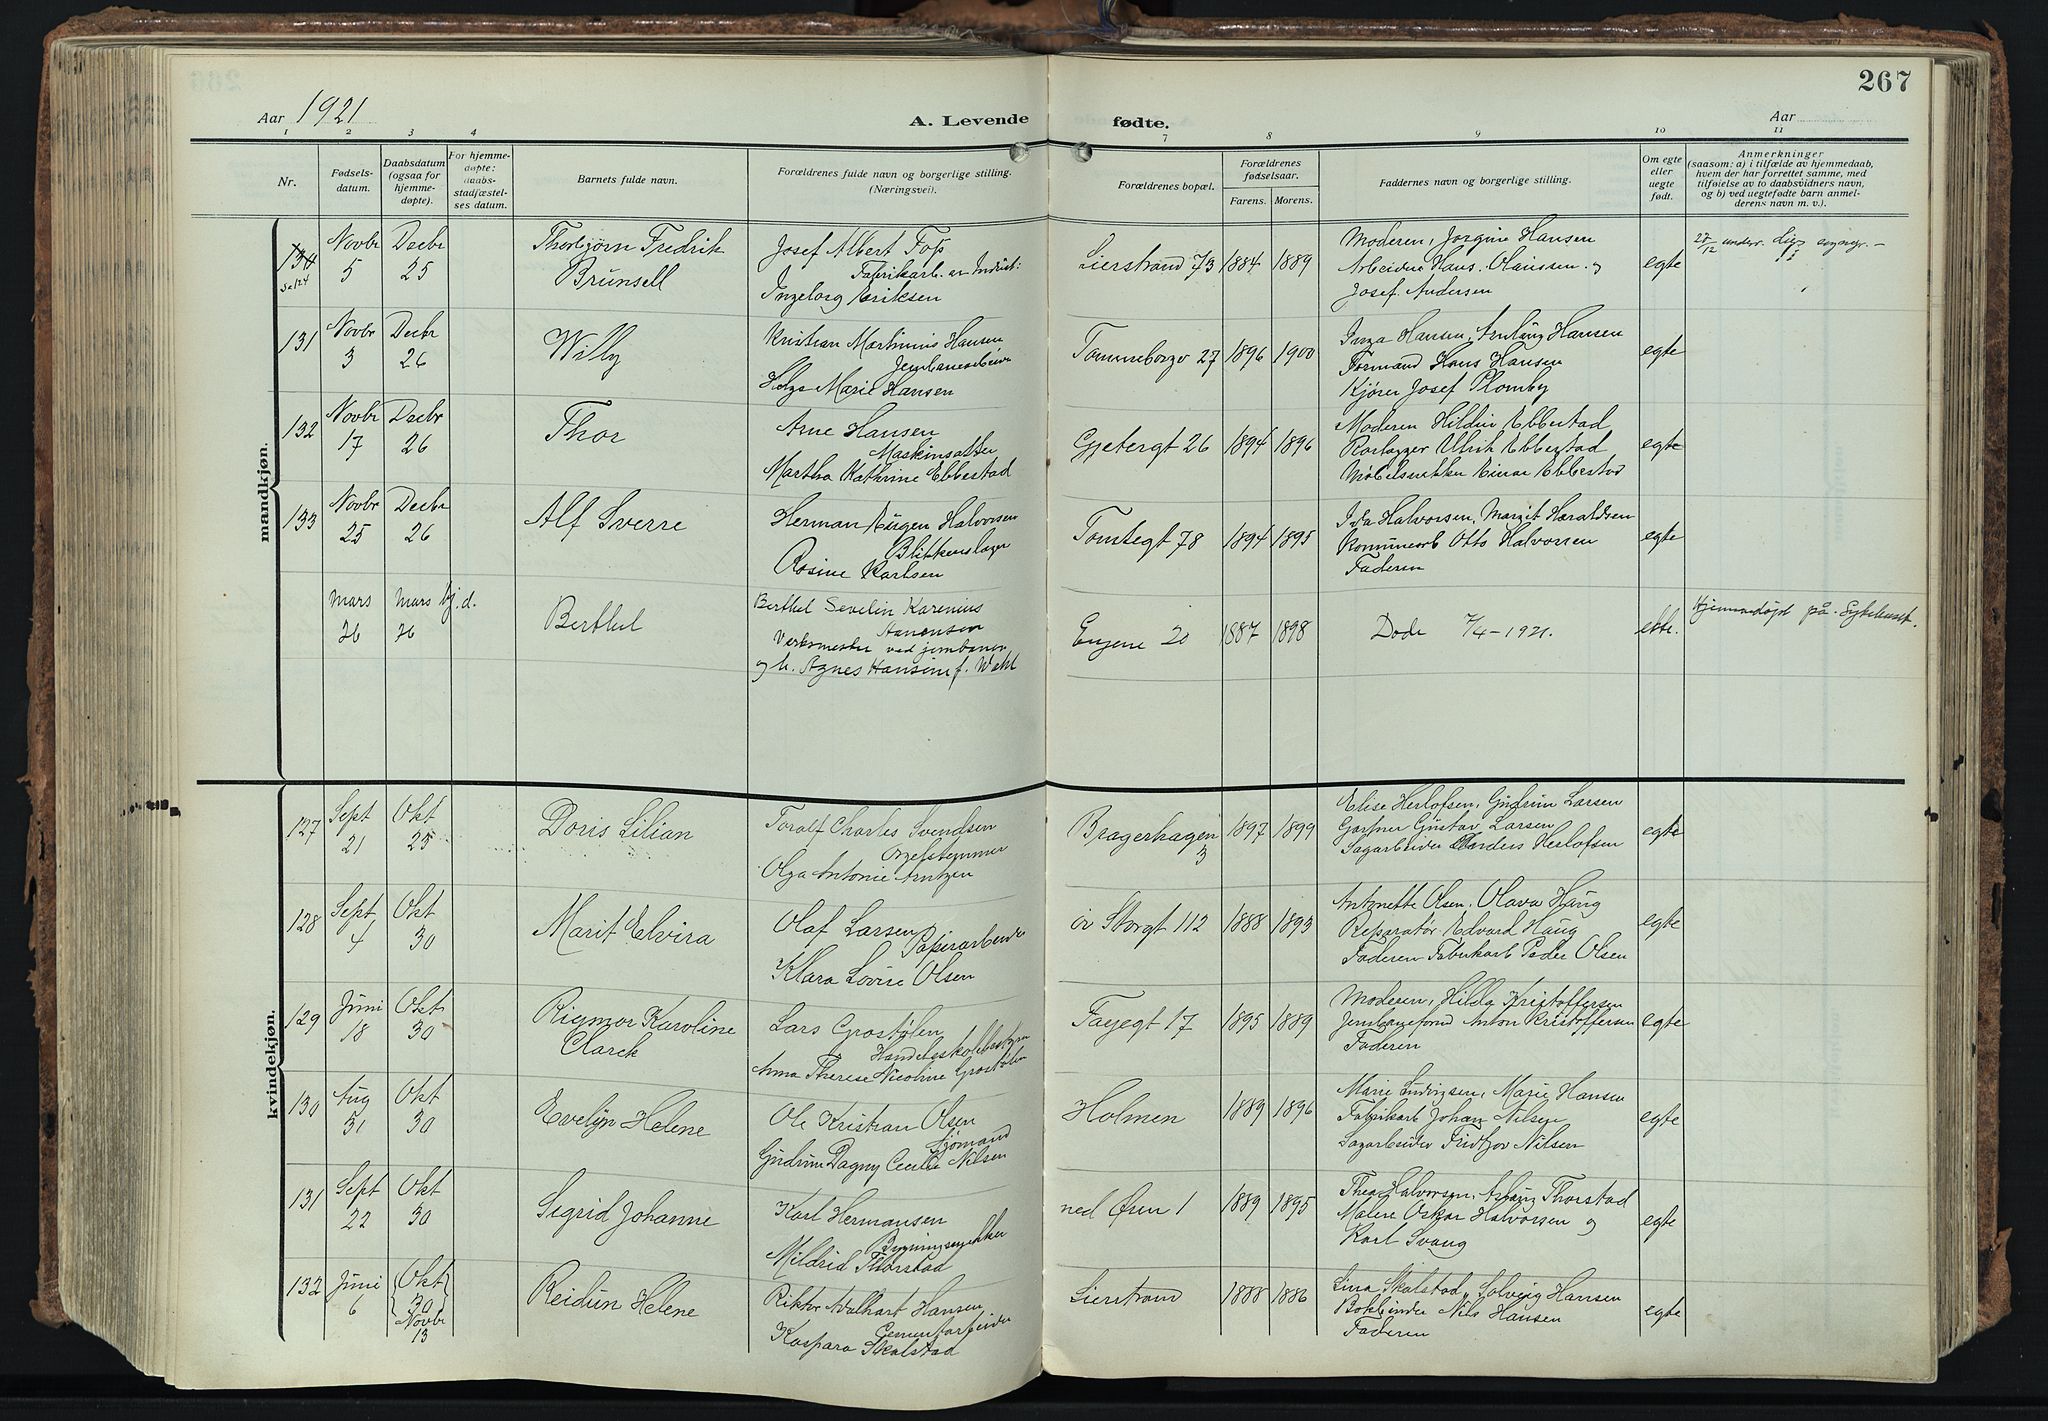 267
Aar 1921
A. Levende fødte.
Aar
1 2 3 4 7 8 9 10 11
Nr.
Fødsels-
datum.
Daabsdatum
(ogsaa for
hjemme-
døpte).
For hjemme-
døpte:
daabs-
stadfæstel-
ses datum.
Barnets fulde navn.
Forældrenes fulde navn og borgerlige stilling.
(Næringsvei).
Forældrenes bopæl.
Forældrenes
fødselsaar.
Farens. Morens.
Faddernes navn og borgerlige stilling.
Om egte
eller
uegte
født.
Anmerkninger
(saasom: a) i tilfælde av hjemmedaab,
hvem der har forrettet samme, med
tilføielse av to daabsvidners navn,
og b) ved uegtefødte barn anmel-
derens navn m. v.).
mandkjøn.
Novbr
5
Decbr
25
Thorbjørn Fredrik
Brunsell
Josef Albert Foss
Fabrikarb.
Ingeborg Eriksen
Lierstrand 73
1884
1889
Moderen, Jorgine Hansen
Arbeider Hans Olaussen og
Josef Andersen
egte
131
Novbr
3
Decbr
26
Willy
Kristian Martinius Hansen
Jernbanearbeider
Helga Marie Hansen
Tomineborgv 27
1896
1900
Inga Hansen, Hansen
Formand Hans Hansen
Kjører Josef Plomby
egte
132
Novbr
17
Decbr
26
Thor
Arne Hansen
Maskinsætter
Martha Kathrine Ebbestad
Gjetergt 26
1894
1896
Moderen Hildur Ebbestad
Ulrik Ebbestad
Møbelsnekker Einar Ebbestad
egte
133
Novbr
25
Decbr
26
Alf Sverre
Herman Eugen Halvorsen
Blikkenslager
Rosine Karlsen
Tomtegt 78
1894
1895
Ida Halvorsen, Margit Haraldsen
Kommunearb Otto Halvorsen
Faderen
egte
mars
26
mars
26
hj. d.
Berthel
Berthel Sevelin Karenius
Hanensen
Verksmester ved jernbanen
og h. Agnes Hansine f. Wahl
Engene 20
1887
1898
Døde 7/4-1921.
ekte.
Hjemmedøpt på Sykehuset.
kvindekjøn.
127
Sept
21
Okt
25
Doris Lilian
Toralf Charles Svendsen
Orgelstemmer
Olga Antonie Arntzen
Bragerhagen
3
1897
1899
Elise Herlofsen, Gudrun Larsen
Gartner Gustav Larsen
Sagarbeider Anders Herlofsen
egte
128
Sept
4
Okt
30
Marit Elvira
Olaf Larsen
Papirarbeider
Klara Lovise Olsen
øv Storgt 112
1888
1893
Antonette Olsen, Olava Haug
Reparatør Edvard Haug
Faderen Fabrikarb Peder Olsen
egte
129
Juni
18
Okt
30
Rigmor Karoline
Clarck
Lars Grostølen
Handelsskolebestyrer
Anna Therese Nicoline Grostølen
Fayegt 17
1895
1889
Moderen, Hilda Kristoffersen
Jernbaneform Anton Kristoffersen
Faderen
egte
130
Aug
31
Okt
30
Evelyn Helene
Ole Kristian Olsen
Sjømand
Gudrun Dagny Cecilie Nilsen
Holmen
1889
1896
Marie Ludvigsen, Marie Hansen
Fabrikarb Johan Nilsen
Sagarbeider Fridtjov Nilsen
egte
131
Sept
22
Okt
30
Sigrid Johanne
Karl Hermansen
Bygningssnekker
Mildrid Thorstad
ned Øren 1
1889
1895
Thea Halvorsen, Aslaug Thorstad
Maler Oskar Halvorsen og
Karl Svang
egte
132
Juni
6
Okt
30
Novbr
13
Reidun Helene
Riktor Walhart Hansen
Cementarbeider
Kaspara Skalstad
Lierstrand
1888
1886
Lina Skalstad, Solveig Hansen
Bokbinder Nils Hansen
Faderen
egte